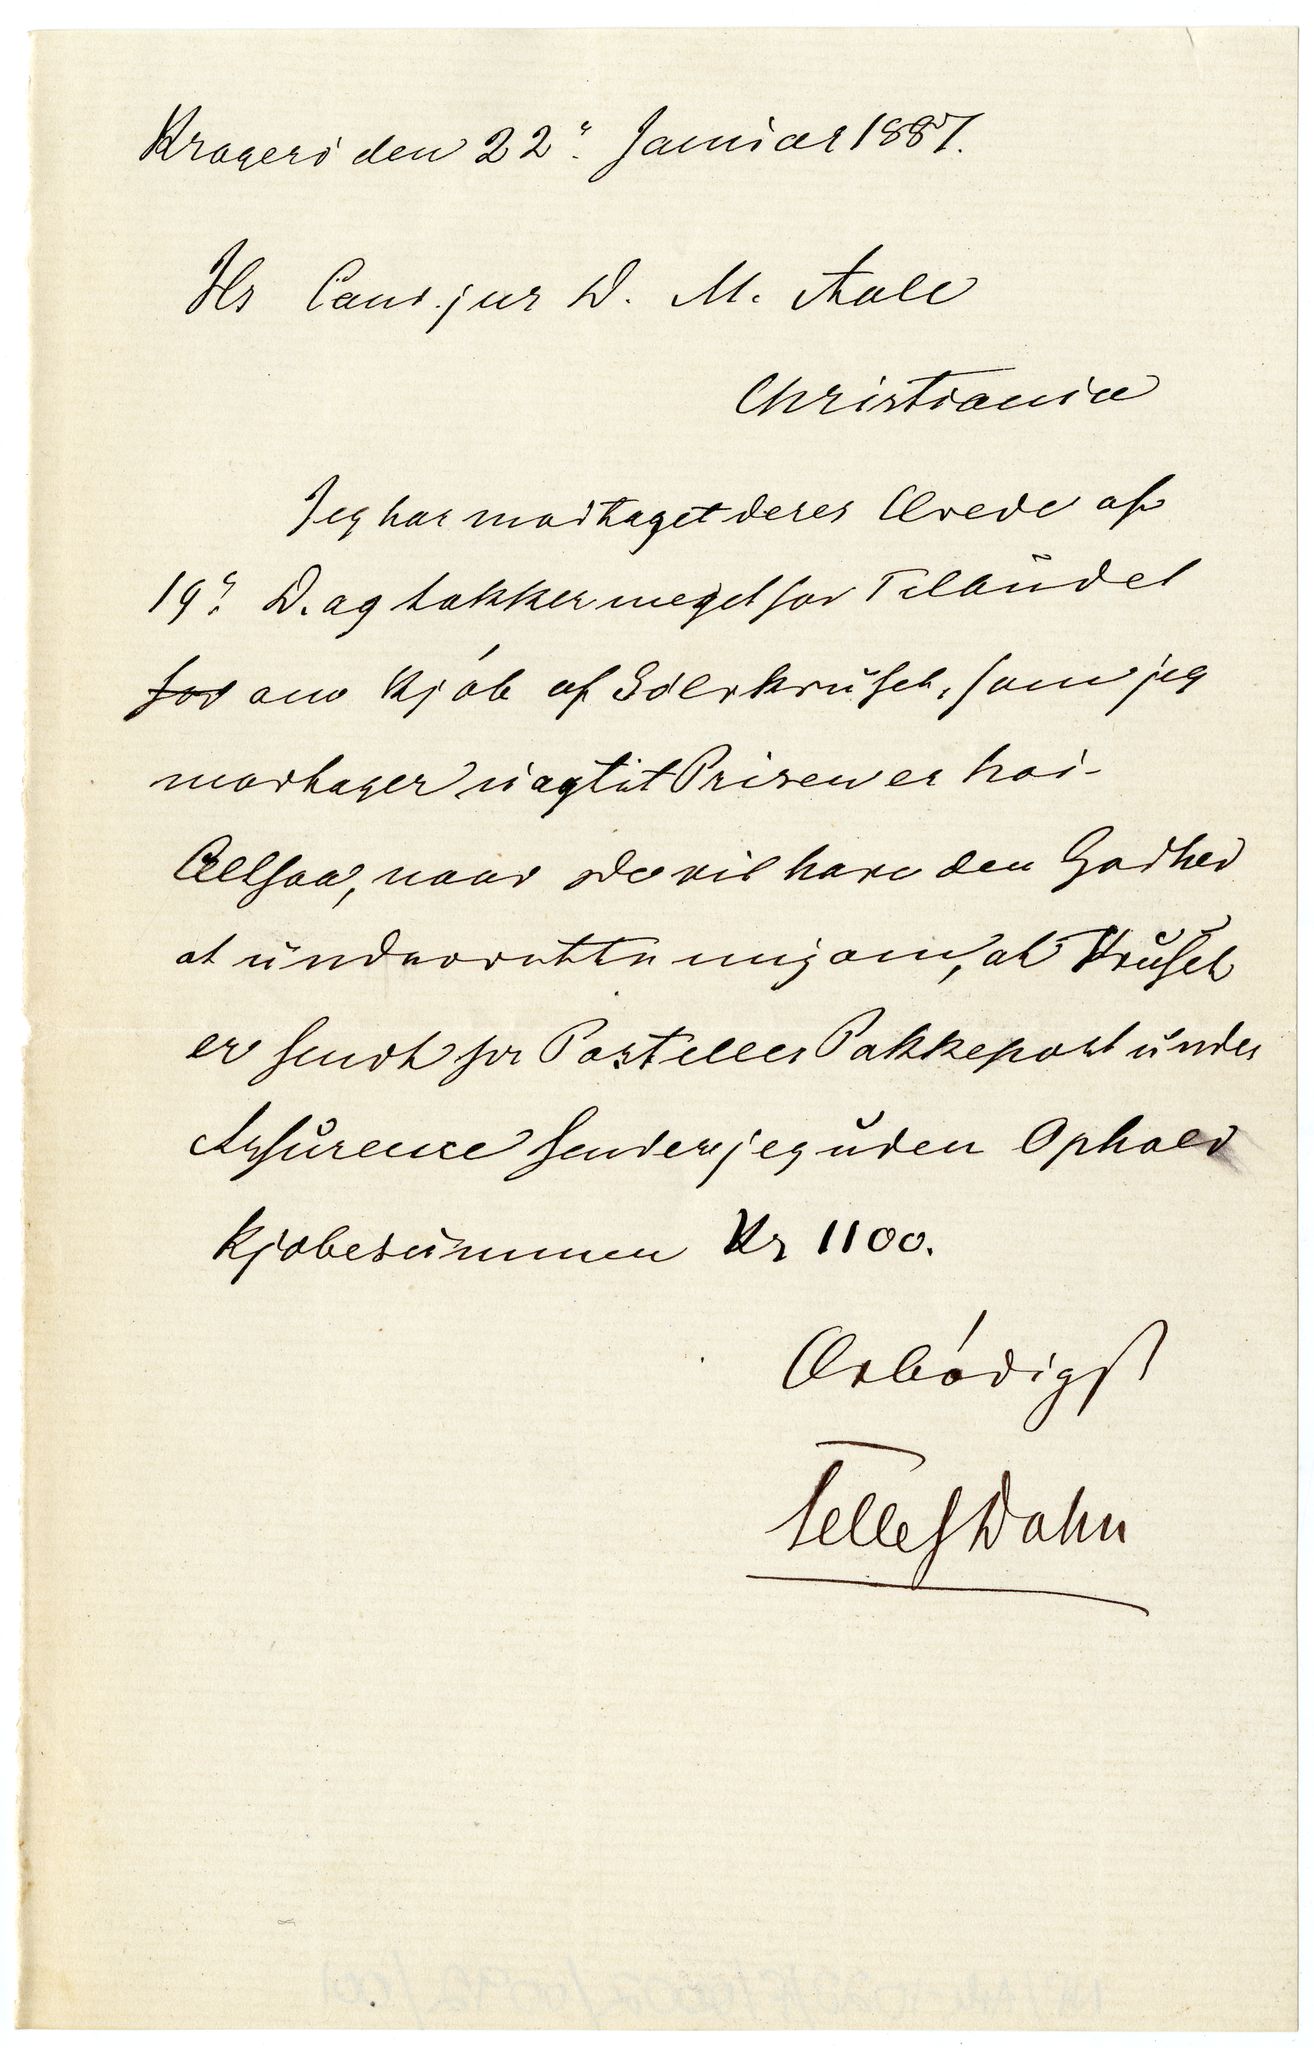 Kragerö den 22de Januar 1887.
Hr Cand. jur D. M. Aall
Christiania
Jeg har modtaget deres Ærede af
19de D. og takker meget for Tilbudet
for om Kjöb af Sölvkruset, som jeg
modtager uagtet Prisen er høi-
Altsaa, naar De vil have den Godhed
at underrette mig om, at Kruset
er sendt pr Post eller Pakkepost under
Assurence sender jeg uden Ophold
Kjøbesummen Kr 1100.
Ærbödigst
Tellef Dahll